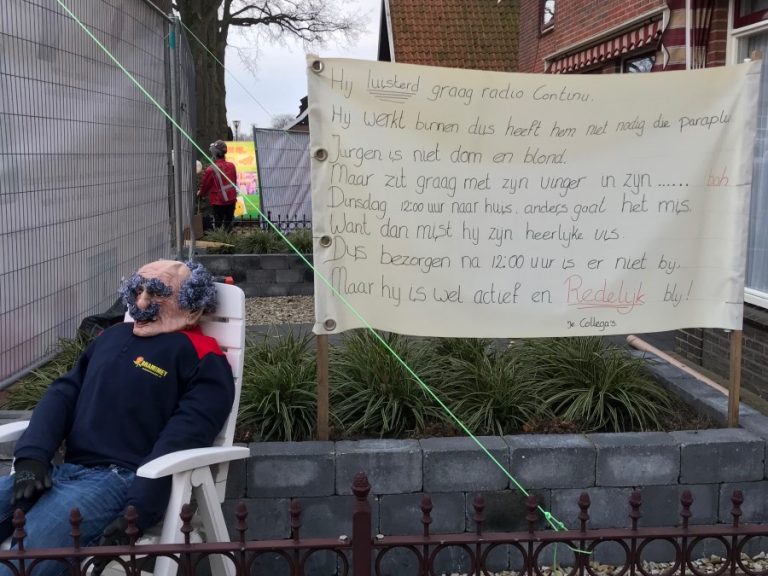 Hij luisterd graag radio Continu.
Hij werkt binnen dus heeft hem niet nodig die paraplu
Jurgen is niet dom en blond.
Maar zit graag met zijn vinger in zijn ...... bah
Dinsdag 12:00 uur naar huis, anders gaat het mis.
Want dan mist hij zijn heerlijke vis.
Dus bezorgen na 12:00 uur is er niet bij.
Maar hij is wel actief en Redelijk blij!
De Collega's